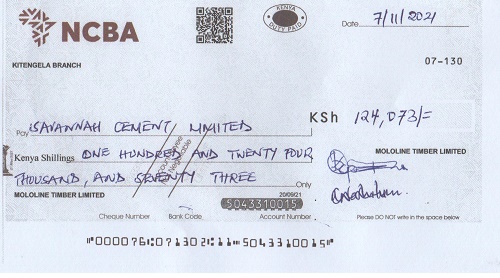 NCBA
KENYA
DUTY PAID
Date 7/11/2021
KITENGELA BRANCH
07-130
Pay SAVANNAH CEMENT LIMITED
KSh 124,073/=
Kenya Shillings ONE HUNDRED AND TWENTY FOUR
MOLOLINE TIMBER LIMITED
THOUSAND, AND SEVENTY THREE Only
Not Negotiable
MOLOLINE TIMBER LIMITED
20/09/21
5043310015
Cheque Number Bank Code Account Number Please DO NOT write in the space below